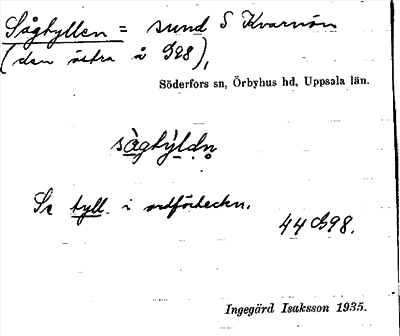 Såghyllen = sund S Kvarnön
(den östra å 998),
Söderfors sn, Örbyhus hd, Uppsala län.
Se hyll i ordförteckn.
Ingegärd Isaksson 1935.